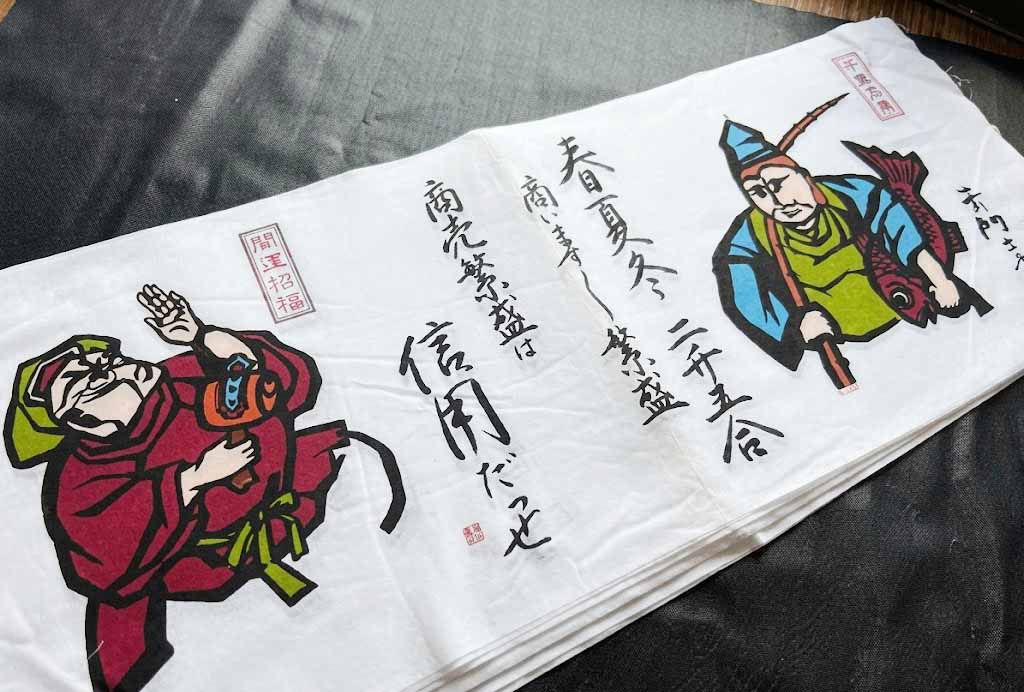 春夏冬 二升五合
商います〱 繁盛
商売繁盛は
信用だっせ
開運招福